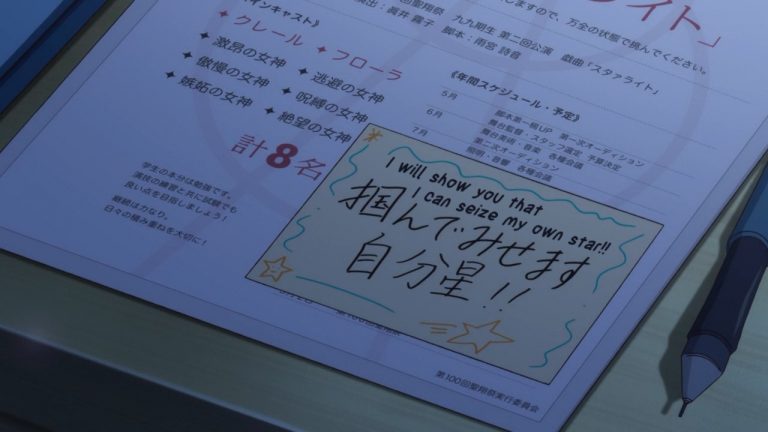 ライト」
しますので、万全の状態で挑んでください。
演出:高井 霧子 脚本:雨宮 詩音
聖翔祭 九九期生 第二回公演 戯曲「スタァライト」
インキャスト》
✦ クレール ✦ フローラ
✦ 激昂の女神 ✦ 逃避の女神
✦ 傲慢の女神 ✦ 呪縛の女神
✦ 嫉妬の女神 ✦ 絶望の女神
計8名
学生の本分は勉強です。
演技の練習と共に試験でも
良い点を目指しましょう!
継続は力なり。
日々の積み重ねを大切に!
《年間スケジュール・予定》
5月 脚本第一稿UP 第一次オーディション
6月 舞台監督・スタッフ選定 予算決定
舞台美術・音楽 各種会議
7月 第二次オーディション
照明・音響 各種会議
I will show you that
I can seize my own star!!
掴んでみせます
自分星!!
第100回聖翔祭実行委員会